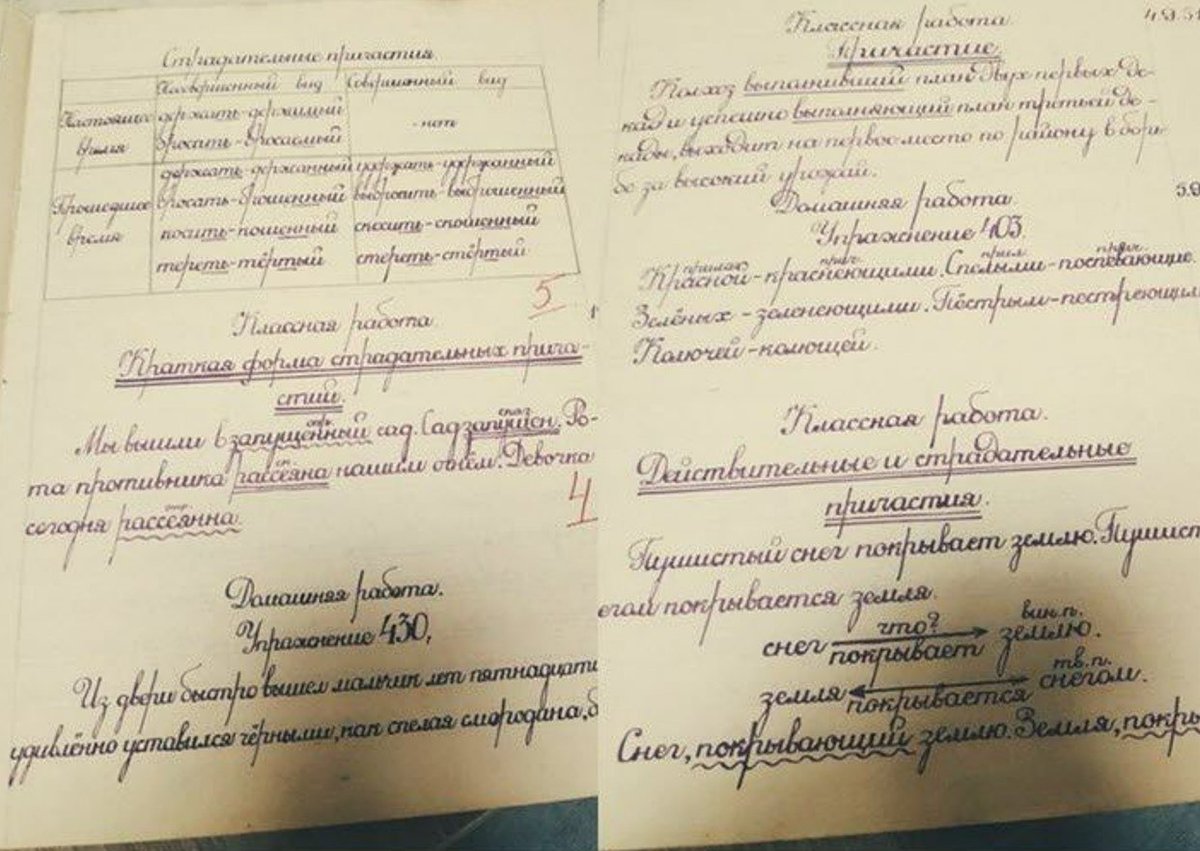 Страдательные причастия.
Несовершенный вид Совершенный вид
Настоящее время
держать-держимый
бросать-бросаемый
-нет
Прошедшее время
держать-держанный удержать-удержанный
бросать-брошенный выбросить-выброшенный
косить-кошенный скосить-скошенный
тереть-тёртый стереть-стёртый
5
Классная работа
Краткая форма страдательных прича-
стий.
прич. сказ.
Мы вышли в запущенный сад. Сад запущен. Ро-
та противника рассеяна нашим огнём. Девочка
4
сегодня рассеянна.
Домашняя работа.
Упражнение 430.
Из двери быстро вышел мальчик лет пятнадцати
удивлённо уставился чёрными, как спелая смородина, б
Классная работа. 4.9.51
Причастие.
Колхоз выполнивший план двух первых де-
кад и успешно выполняющий план третьей де-
кады, выходит на первое место по району в борь-
бе за высокий урожай.
5.9
Домашняя работа.
Упражнение 403.
прилаг. прич. прил. прич.
Красной-краснеющими. Спелыми-поспевающие.
Зелёных-зеленеющими. Пёстрым-пестреющим
Колючей-колющей.
Классная работа.
Действительные и страдательные
причастия.
Пушистый снег покрывает землю. Пушист
егом покрывается земля.
что? вин.п.
снег покрывает землю.
тв.п.
земля покрывается снегом.
Снег, покрывающий землю. Земля, покры